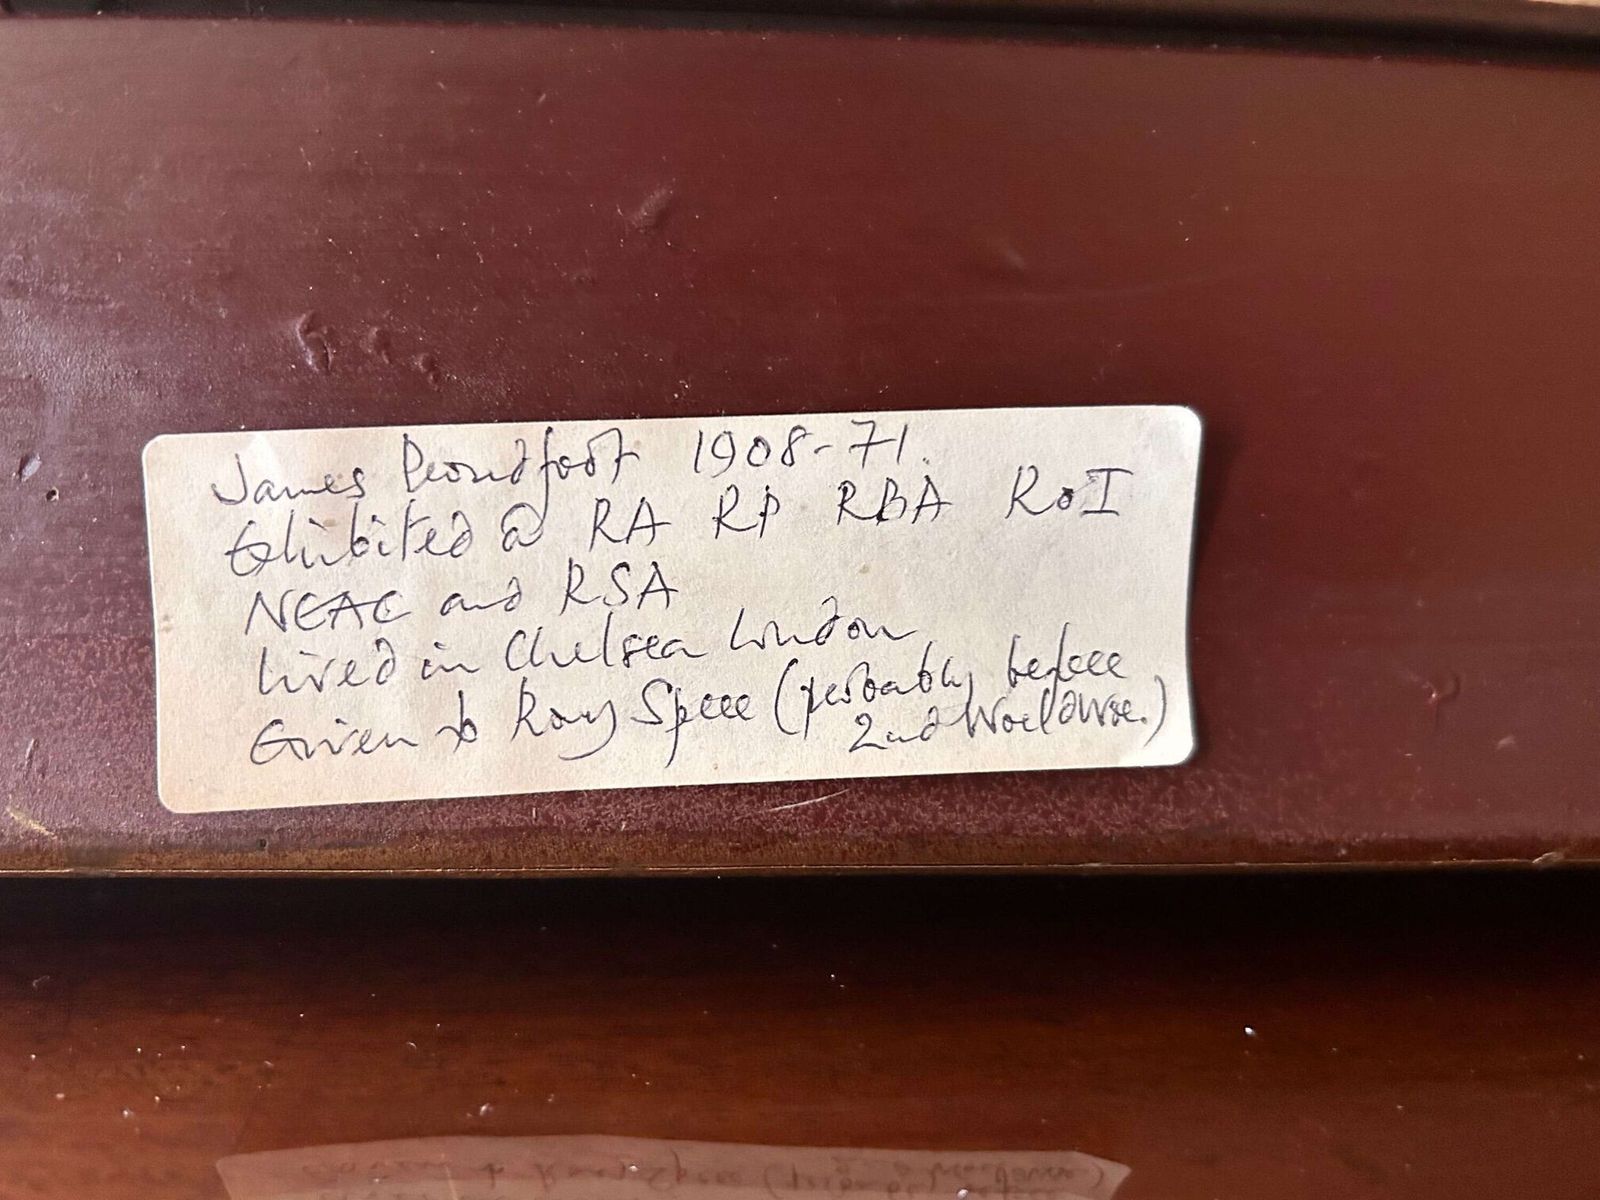 James Proudfoot 1908-71.
Exhibited @ RA RP RBA RoI
NEAC and RSA
Lived in Chelsea London
Given to Roy Spree (probably before
2nd World War.)